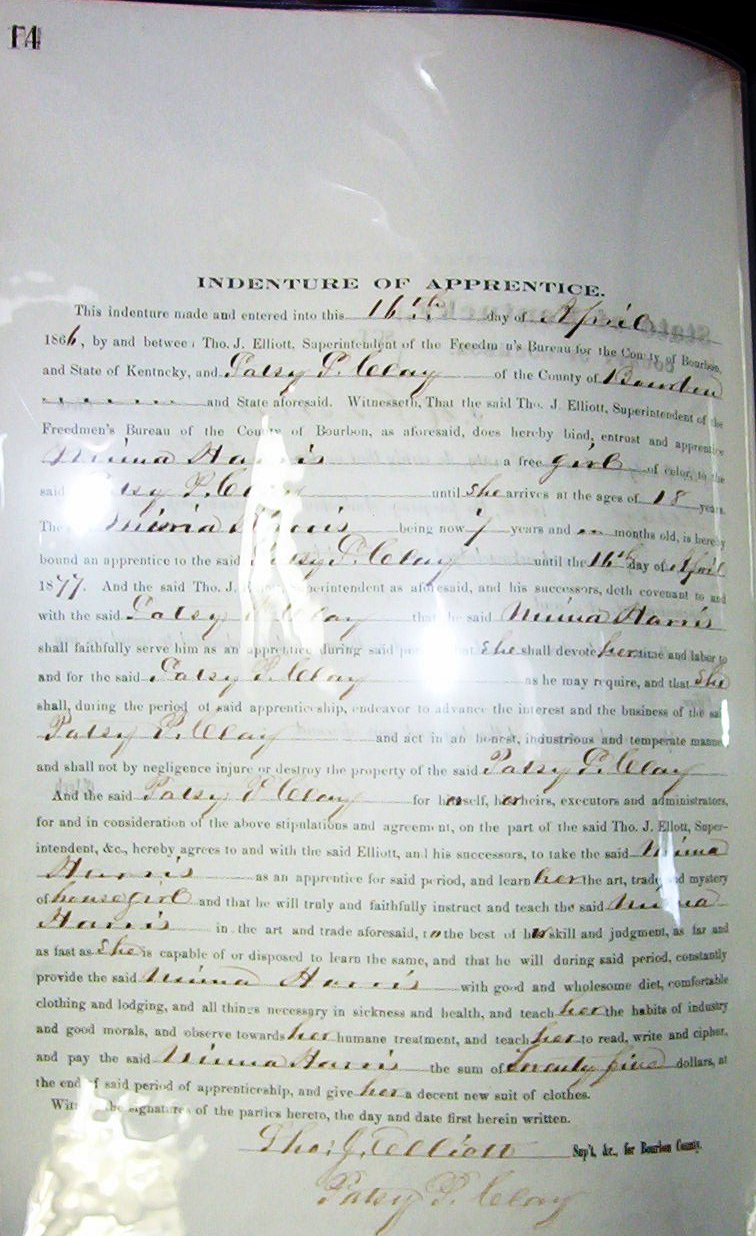 F4
INDENTURE OF APPRENTICE.
This indenture made and entered into this 16th day of April
1866, by and between Tho. J. Elliott, Superintendent of the Freedmen's Bureau for the County of Bourbon,
and State of Kentucky, and Patsy P. Clay of the County of Bourbon
and State aforesaid. Witnesseth, That the said Tho. J. Elliott, Superintendent of the
Freedmen's Bureau of the County of Bourbon, as aforesaid, does hereby bind, entrust and apprentice
Minna Harris a free girl of color, to the
said Patsy P. Clay until she arrives at the ages of 18 years.
The Minna Harris being now 7 years and months old, is hereby
bound an apprentice to the said Patsy P. Clay until the 16th day of April
1877. And the said Tho. J. Superintendent as aforesaid, and his successors, doth covenant to and
with the said Patsy P. Clay that he said Minna Harris
shall faithfully serve him as an apprentice during said that she shall devote her time and labor to
and for the said Patsy P. Clay as he may require, and that she
shall, during the period of said apprenticeship, endeavor to advance the interest and the business of the said
Patsy P. Clay and act in an honest, industrious and temperate manner
and shall not by negligence injure or destroy the property of the said Patsy P. Clay
And the said Patsy P Clay for herself, her heirs, executors and administrators,
for and in consideration of the above stipulations and agreement, on the part of the said Tho. J. Ellott, Super-
intendent, &c., hereby agrees to and with the said Elliott, and his successors, to take the said Minna
Harris as an apprentice for said period, and learn her the art, trade and mystery
of house girl and that he will truly and faithfully instruct and teach the said Minna
Harris in the art and trade aforesaid, to the best of her skill and judgment, as far and
as fast as she is capable of or disposed to learn the same, and that he will during said period, constantly
provide the said Minna Harris with good and wholesome diet, comfortable
clothing and lodging, and all things necessary in sickness and health, and teach her the habits of industry
and good morals, and observe towards her humane treatment, and teach her to read, write and cipher,
and pay the said Minna Harris the sum of Seventy five dollars, at
the end of said period of apprenticeship, and give her a decent new suit of clothes.
Witness the signatures of the parties hereto, the day and date first herein written.
Tho. J. Elliott Sup't, &c., for Bourbon County.
Patsy P. Clay